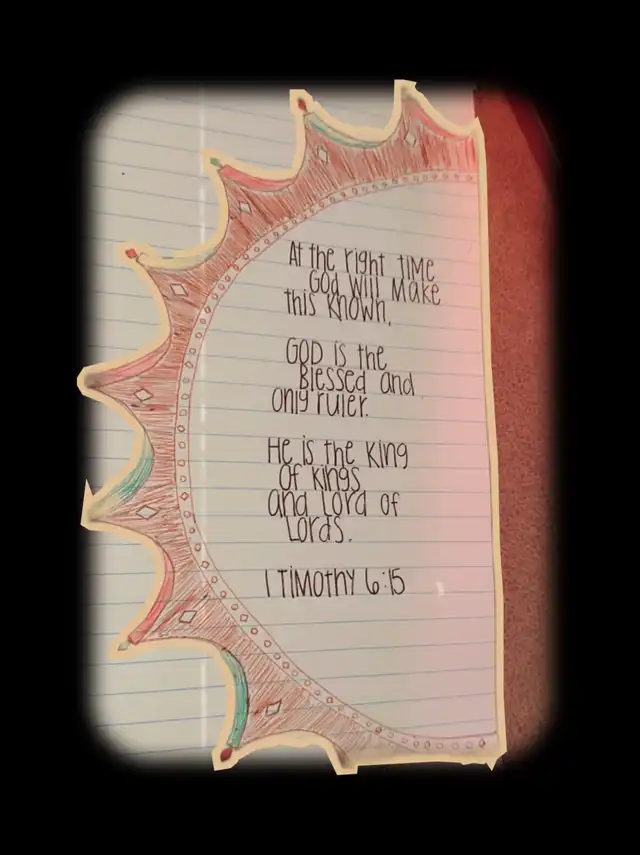 At the right time
God will Make
this known.
GOD is the
Blessed and
only ruler.
He is the King
Of Kings
and Lord of
Lords.
1 Timothy 6:15